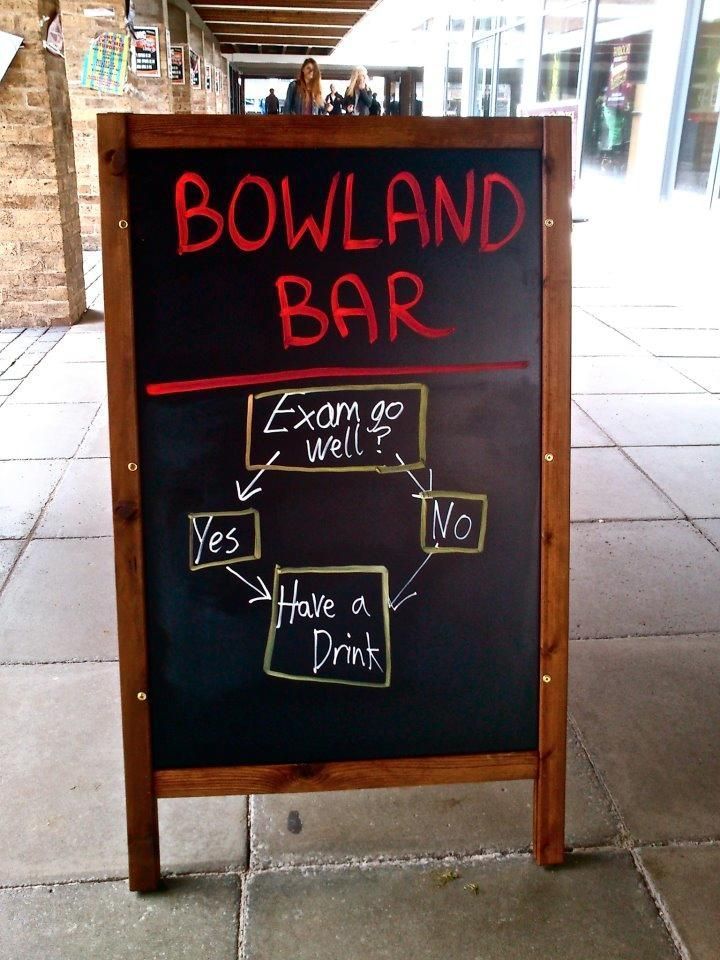 BOWLAND
BAR
Exam go
well?
Yes
No
Have a
Drink